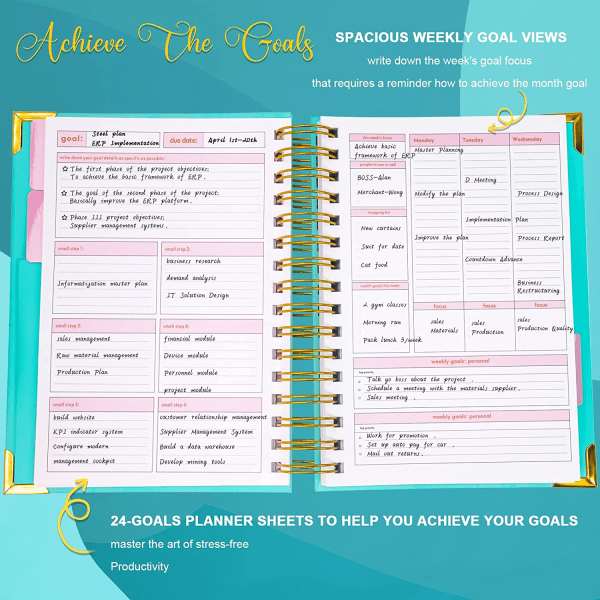 Achieve The Goals
SPACIOUS WEEKLY GOAL VIEWS
write down the week's goal focus
that requires a reminder how to achieve the month goal
goal:
Steel plan
ERP Implementation
due date:
April 1st-20th
write down your goal details as specific as possible!
The first phase of the project objectives;
To achieve the basic framework of ERP.
The goal of the second phase of the project;
Basically improve the ERP platform.
Phase III project objectives;
Supplier management systems.
small step 1:
Informatigation master plan
small step 2:
business research
demand analysis
IT Solution Design
small step 3:
sales management
Raw material management
Production Plan
small step 4:
financial module
Device module
Personnel module
project module
small step 5:
build website
KPI indicator system
Configure modern
management cockpit
small step 6:
customer relationship management
Supplier Management System
Build a data warehouse
Develop mining tools
this week's focus
Achieve basic
framework of ERP
people to see or call
BOSS-Alan
Merchant-Wong
shopping list
New curtains
Suit for date
Cat food
health goals this week
2 gym classes
Morning run
Pack lunch 3/week
Monday
Master Planning
Modify the plan
Improve the plan
focus
sales
Materials
Tuesday
D Meeting
Implementation Plan
Countdown Advance
focus
sales
Production
Wednesday
Process Design
Process Report
Business
Restructuring
focus
sales
Production Quality
weekly goals: personal
top priority
Talk go boss about the project .
Schedule a meeting with the materials supplier.
Sales meeting .
weekly goals: personal
top priority
Work for promotion .
Set up auto pay for car .
Mail out returns.
24-GOALS PLANNER SHEETS TO HELP YOU ACHIEVE YOUR GOALS
master the art of stress-free
Productivity